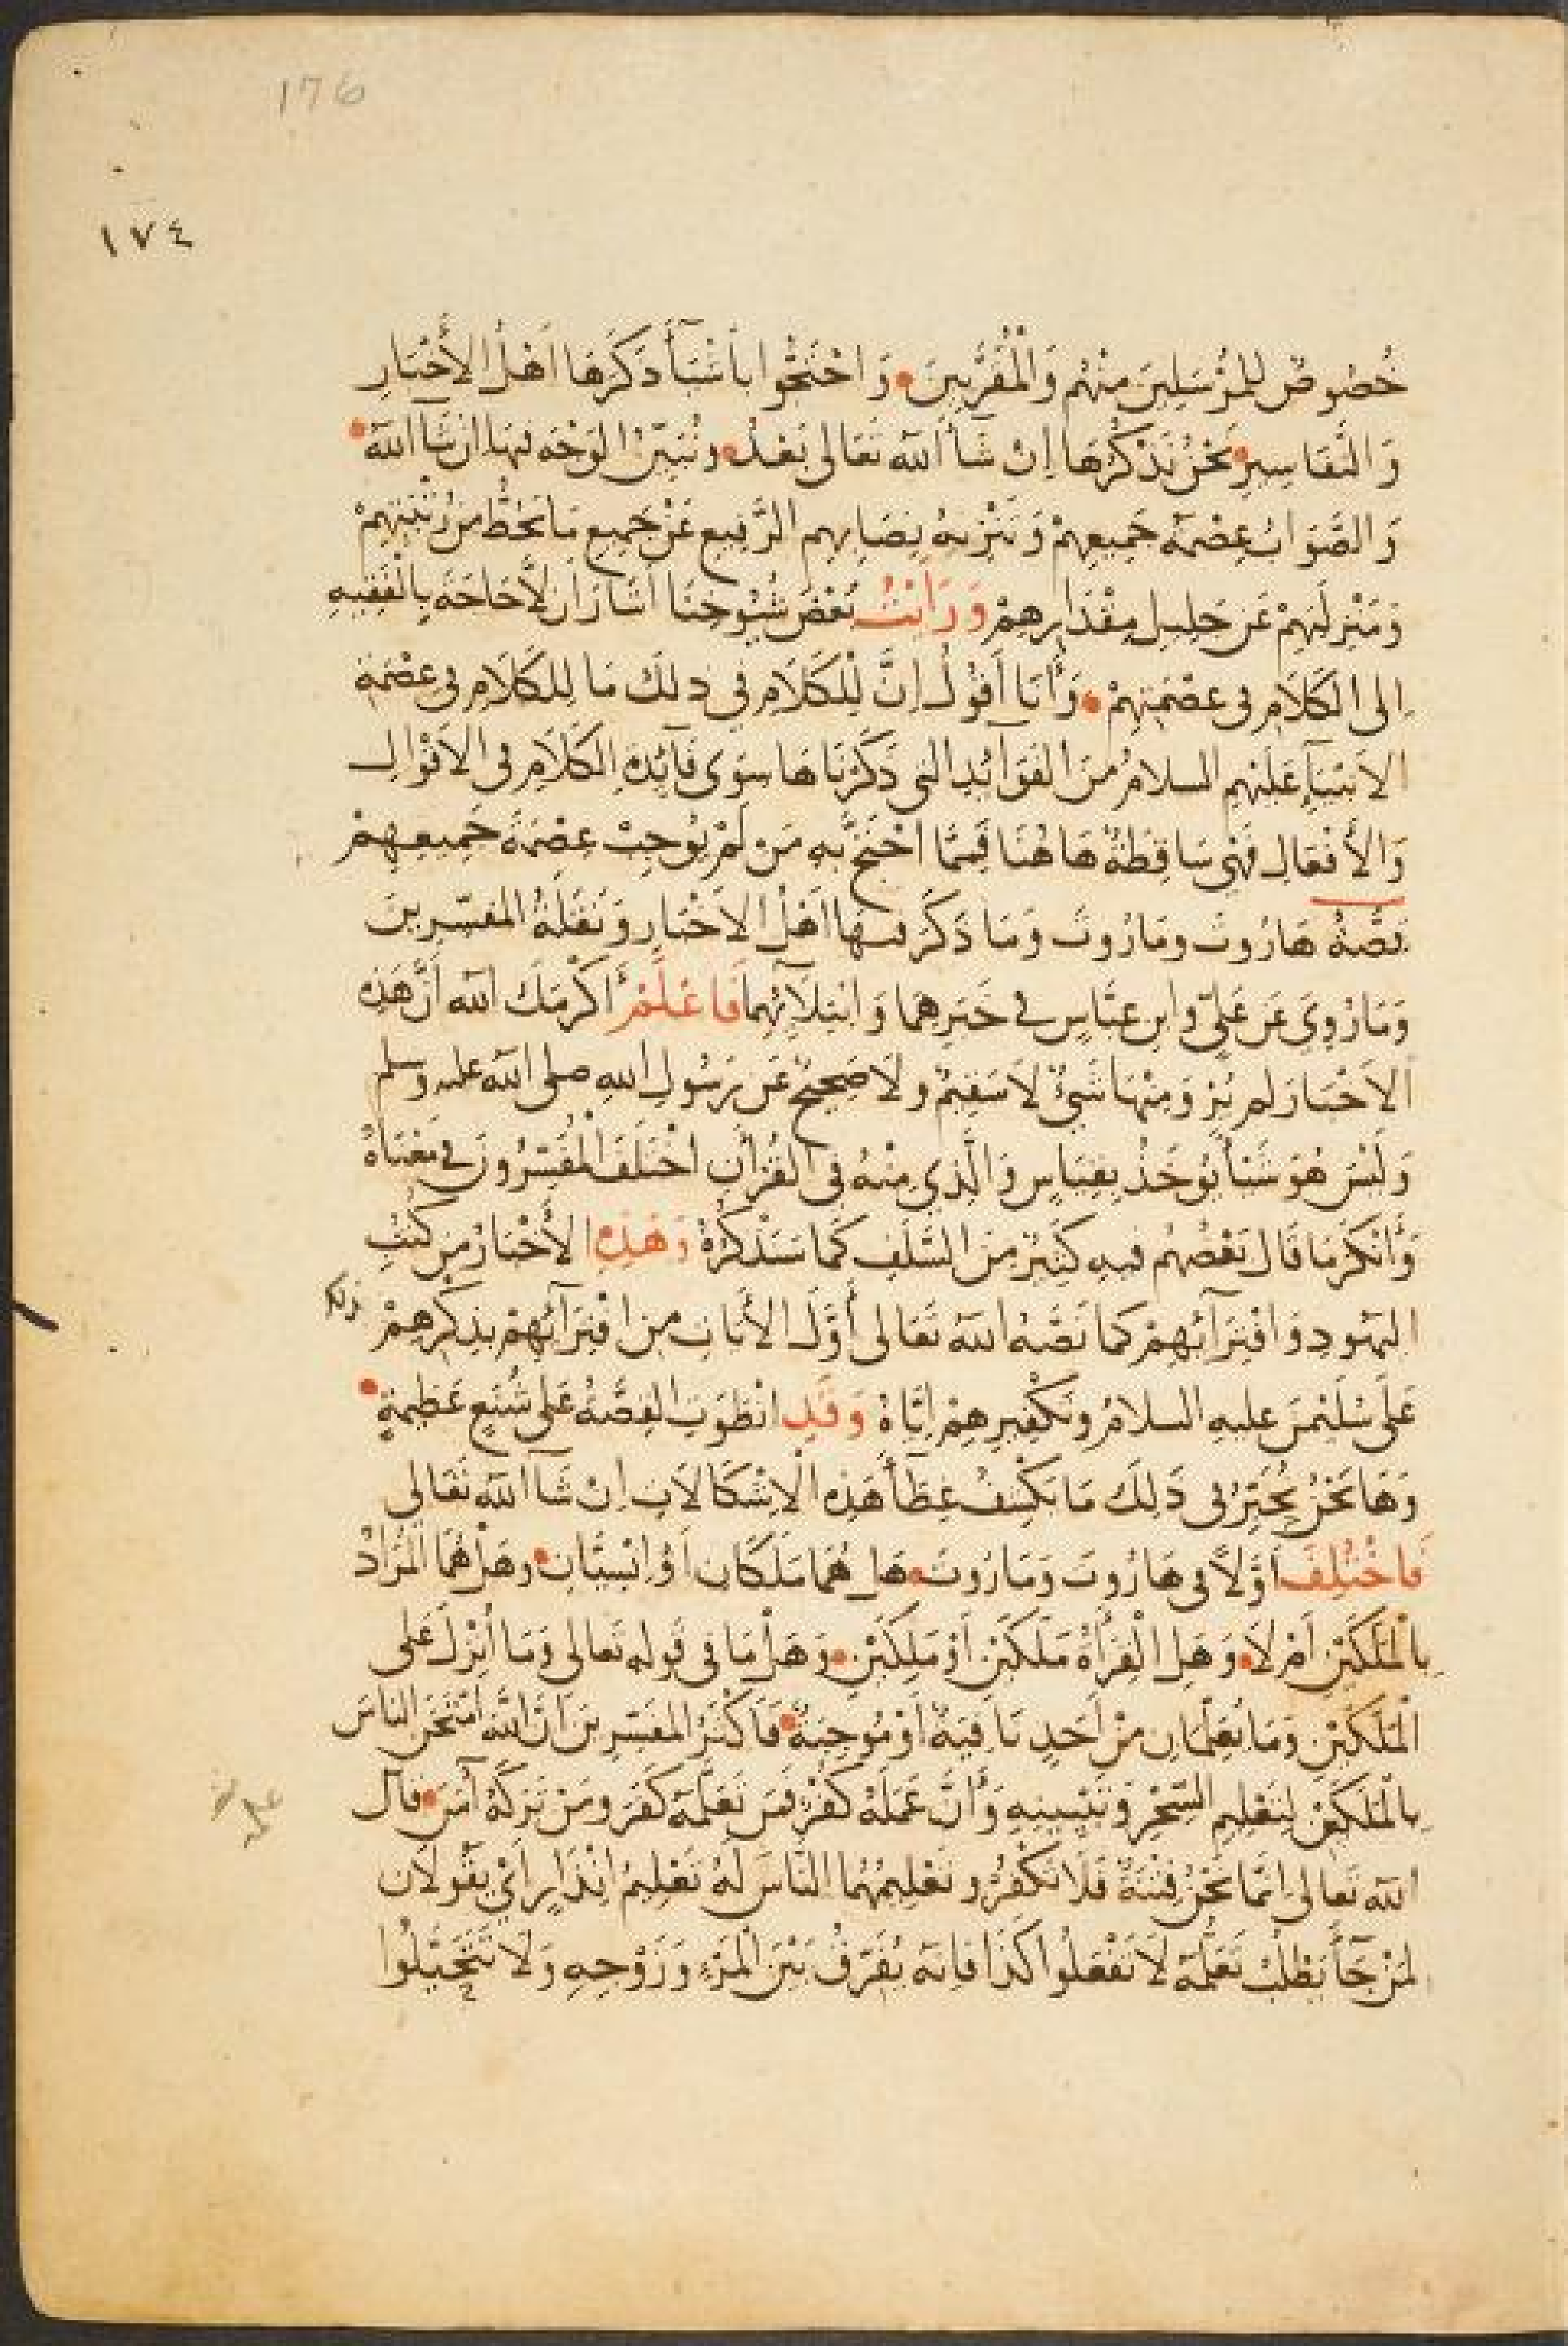 176
١٧٤
خُصُوصٌ لِلْمُرْسَلِينَ مِنْهُم وَالْمُقَرَّبِينَ وَاحْتَجُّوا بأَشْيَآءَ ذَكَرَهَا اَهْلُ الأَخْبَارِ
وَالتَّفَاسِيرِ نَحْنُ نَذْكُرُهَا اِنْ شَآءَ الله تَعَالى بَعْدُ ونُبَيِّنُ الوَجْهَ فيهَا ان شَآ الله
وَالصَّوَابُ عِصْمَةُ جَمِيعِهِمْ وَتَنْزِيهُ نِصَابِهِم الرَّفِيعِ عَنْ جَمِيعِ مَا يَحُطُّ مِنْ رُتْبَتِهِمْ
وَمَنْزِلَتِهِمْ عَن جَلِيلِ مِقْدَارِهِمْ وَرَاَيْتُ بَعْضَ شُيُوخِنَا اَشَارَ اَنْ لَّا حَاجَةَ بِالْفَقِيهِ
اِلى الْكَلَامِ فى عِصْمَتِهِمْ وَأَنَا أَقُولُ اِنَّ لِلْكَلَامِ فِي ذلِكَ مَا لِلْكَلَامِ فى عِصْمَةِ
الاَنْبِيَآءِ عَلَيْهِم السلامُ مِنَ الفَوَآئِدِ التى ذَكَرْنَاهَا سِوَى فَآئِدَةِ الكَلَامِ فى الاَقْوَالِ
وَالأَفْعَالِ فَهْىَ سَاقِطَةٌ هَاهُنَا فَمِمَّا احْتَجَّ بِهِ مَن لَمْ يُوجِبْ عِصْمَةَ جَمِيعِهِمْ
قِصَّةُ هَارُوتَ ومَارُوتَ وَمَا ذَكَرَ فيهَا اَهْلُ الاَخْبَارِ وَنَقَلَةُ المُفَسِّرِينَ
وَمَا رُوِيَ عَن عَلِيٍّ وابنِ عبَّاسٍ في خَبَرِهِمَا وَابْتِلَآئِهِمَا فَاعْلَمْ أَكْرَمَكَ الله أَنَّ هَذِهِ
الاَخْبَارَ لم يُرْوَ مِنْهَا شَيْءٌ لَا سَقِيمٌ ولَا صَحِيحٌ عَن رَسُولِ اللهِ صلى الله عليه وسلم
وَلَيْسَ هُوَ شَيْئاً يُوخَذُ بِقِيَاسٍ وَالَّذِي مِنْهُ فى القُرْآنِ اخْتَلَفَ المُفَسِّرُونَ في مَعْنَاهُ
وَأَنْكَرَ مَا قَالَ بَعْضُهُم فيهِ كَثِيرٌ مِنَ السَّلَفِ كَمَا سَنَذْكُرُهُ وَهَذِهِ الأَخْبَارُ مِن كُتُبِ
اليَهُودِ وَافْتِرَآئِهِمْ كما نَصَّهُ الله تَعَالى أَوَّلَ الأَيَاتِ مِن افْتِرَآئِهِمْ بِذِكْرِهِمْ ذلك
عَلَى سُلَيْمنَ عليهِ السلامُ وتَكْفِيرِهِمْ اِيَّاهُ وَقَدِ انْطَوَتِ القِصَّةُ عَلى شُنَعٍ عَظِيمَةٍ
وَهَا نَحْنُ نُحَبِّرُ فى ذَلِكَ مَا يَكْشِفُ غِطَآءَ هَذِهِ الْاِشْكَالَاتِ اِنْ شَآ الله تَعَالى
فَاخْتُلِفَ أَوَّلاً فى هَارُوتَ وَمَارُوتَ هَل هُمَا مَلَكَانِ أَوْ اِنْسِيَّانِ وهَلْ هُمَا المُرَادُ
بِالْمَلَكَيْنِ أَمْ لَا وَهَلِ الْقِرَأَةُ مَلَكَيْنِ أَوْ مَلِكَيْنِ وَهَلْ مَا فى قوله تَعالى وَمَا أُنْزِلَ عَلى
الْمَلَكَيْنِ وَمَا يُعَلِّمَانِ مِنْ أَحَدٍ نَافِيَةٌ أَوْ مُوجِبَةٌ فَاَكْثَرُ المفَسِّرِينَ اَنَّ اللهَ امْتَحَنَ الناسَ
بِالْمَلَكَيْنِ لِتَعْلِيمِ السِّحْرِ وتَبْيِينِهِ وَأَنَّ عَمَلَهُ كُفْرٌ فَمَن تَعَلَّمَهُ كَفَرَ ومَنْ تَرَكَهُ آمَنَ قال
الله تَعالى اِنَّمَا نَحْنُ فِتْنَةٌ فَلَا تَكْفُرْ وتَعْلِيمُهُمَا النَّاسَ لَهُ تَعْلِيمُ اِنْذَارٍ أَيْ يَقُولَانِ
لِمَنْ جَآءَ يَطْلُبُ تَعَلُّمَهُ لَا تَفْعَلُوا كَذَا فَاِنَّهُ يُفَرِّقُ بَيْنَ الْمَرْءِ وَزَوْجِهِ وَلَا تَتَحَيَّلُوا